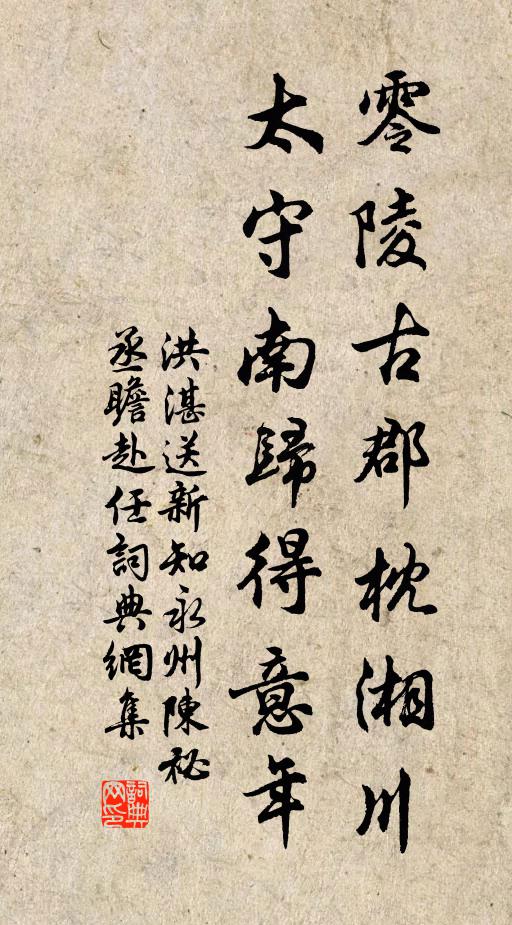 零陵古郡枕湘川
太守南歸得意年
洪湛送新知永州陳秘
丞瞻赴任詞典網集
詞典
网印